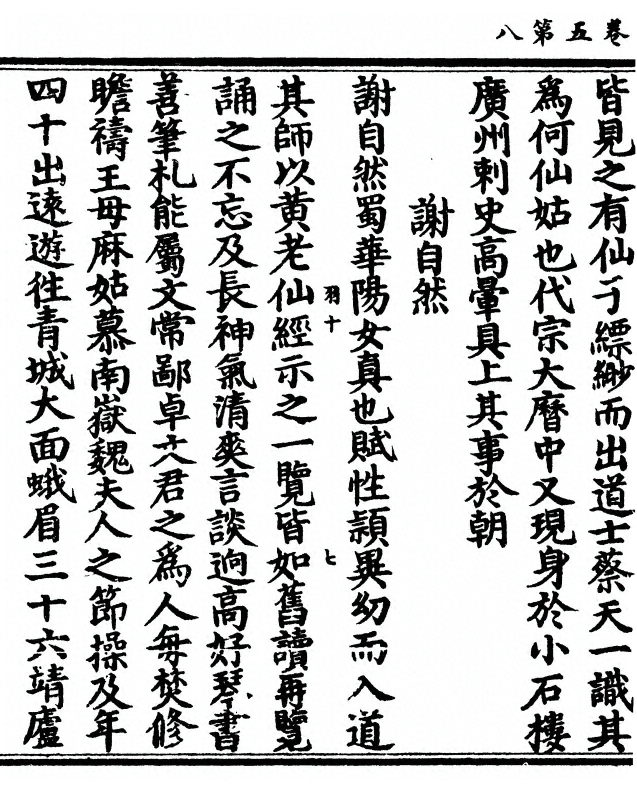 卷五第八
皆見之有仙子縹緲而出道士蔡天一識其
為何仙姑也代宗大曆中又現身於小石樓
廣州刺史高暈具上其事於朝
謝自然
謝自然蜀華陽女真也賦性穎異幼而入道
羽十
七
其師以黃老仙經示之一覽皆如舊讀再覽
誦之不忘及長神氣清爽言談逈高好琴書
善筆札能屬文常鄙卓文君之為人每焚修
瞻禱王母麻姑慕南嶽魏夫人之節操及年
四十出遠遊往青城大面蛾眉三十六靖廬